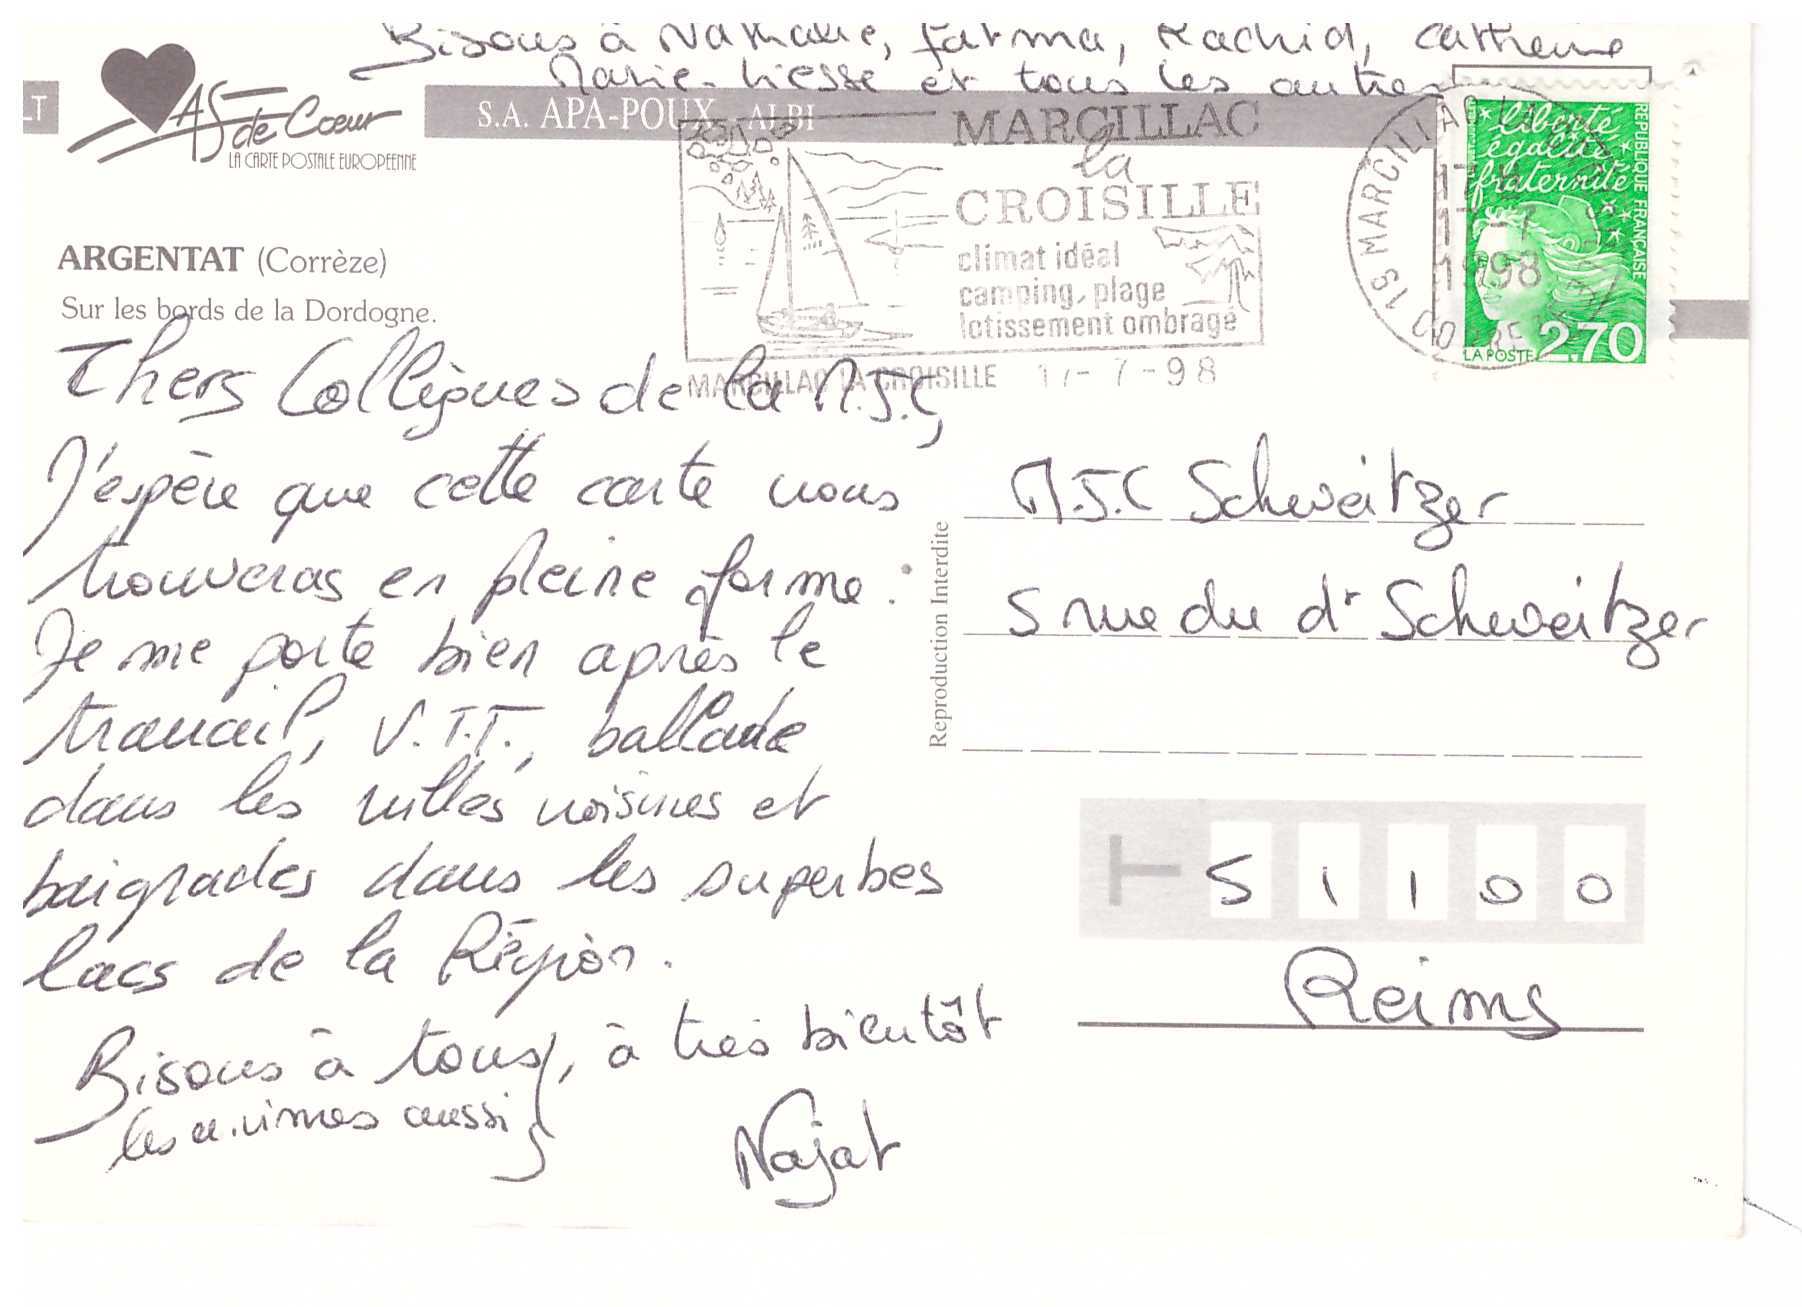 Bisous à Nathalie, Fatma, Rachid, Catherine
Marie-Liesse et tous les autres
LT
AS de Cœur
LA CARTE POSTALE EUROPEENNE
S.A. APA-POUX - ALBI
MARCILLAC
la
CROISILLE
climat idéal
camping, plage
lotissement ombragé
MARCILLAC LA CROISILLE 17-7-98
19 MARCILLAC
17-7
1998
CORREZE
liberté
égalité
fraternité
REPUBLIQUE FRANÇAISE
LA POSTE 2,70
ARGENTAT (Corrèze)
Sur les bords de la Dordogne.
Chers Collègues de la M.J.C,
J'espère que cette carte vous
trouveras en pleine forme.
Je me porte bien après le
travail, V.T.T., ballade
dans les villes voisines et
baignades dans les superbes
lacs de la Région.
Bisous à tous, à très bientôt
les aussi
Najat
Reproduction Interdite
M.J.C Schweitzer
5 rue du dr Schweitzer
51100
Reims